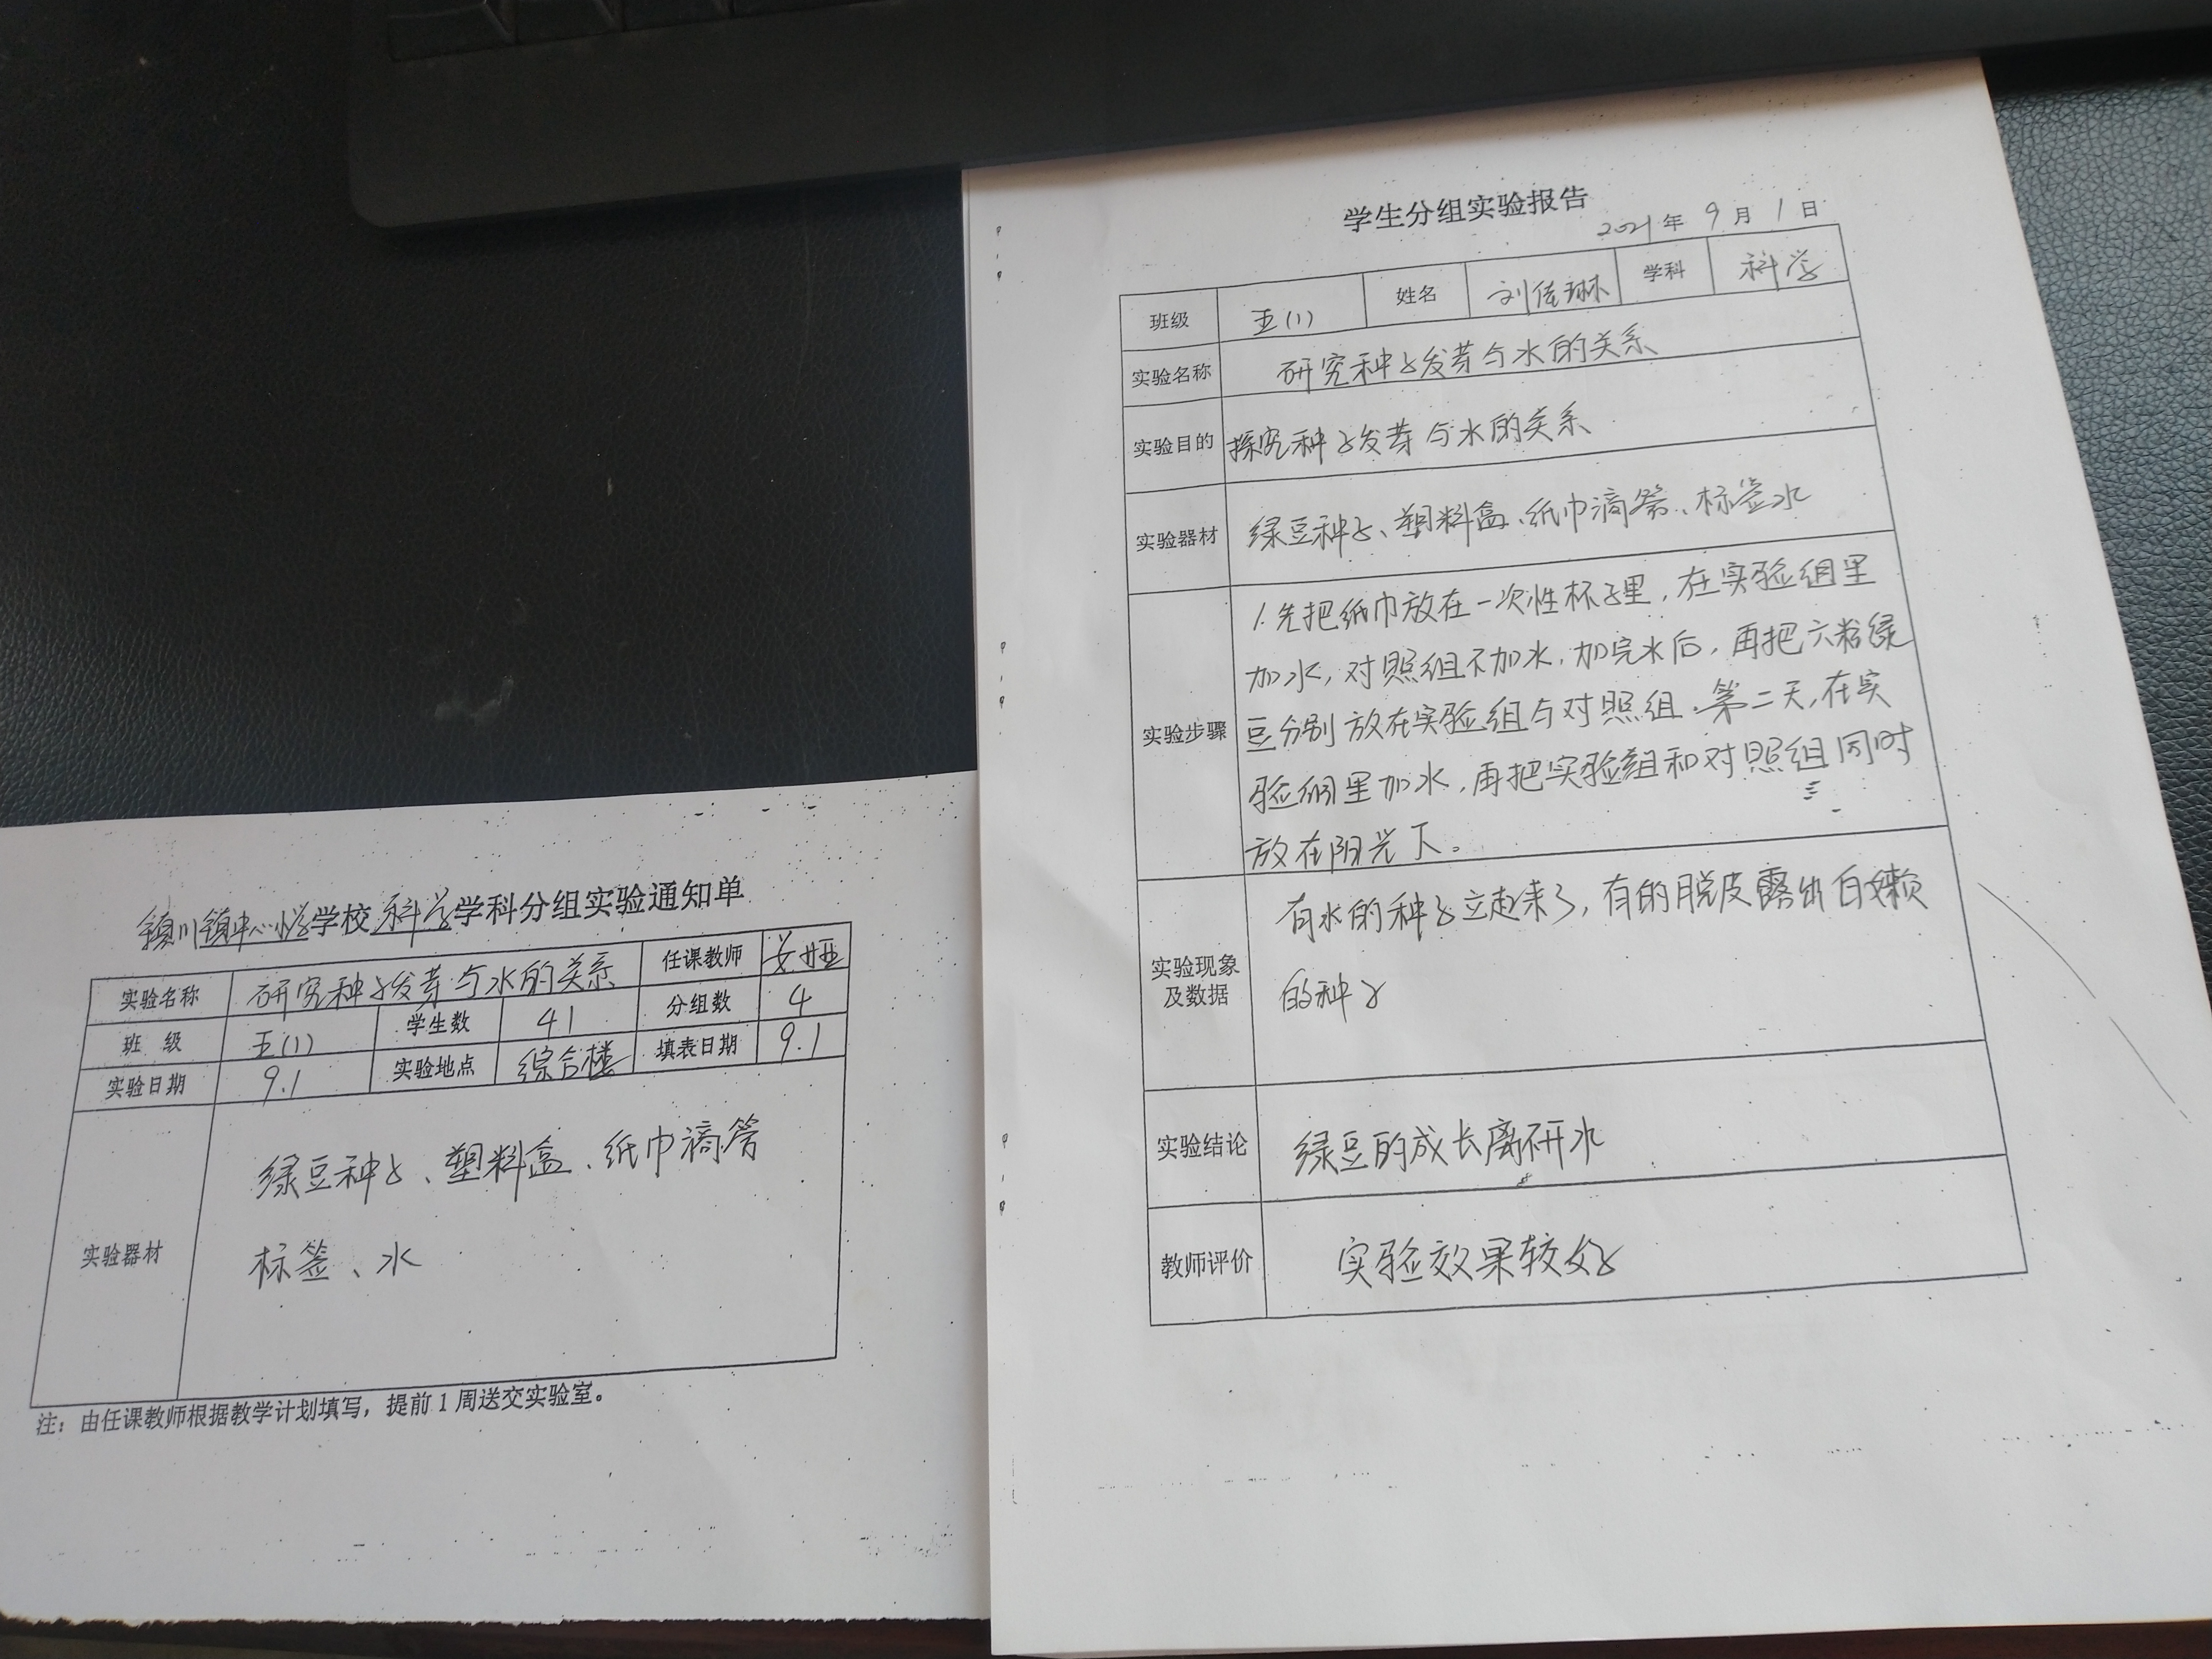 镇川镇中心小学学校科学学科分组实验通知单
实验名称 研究种子发芽与水的关系 任课教师
班 级 五(1) 学生数 41 分组数 4
实验日期 9.1 实验地点 综合楼 填表日期 9.1
实验器材
绿豆种子、塑料盒、纸巾滴管
标签、水
注：由任课教师根据教学计划填写，提前1周送交实验室。
学生分组实验报告
2021年 9月 1日
班级 五(1) 姓名 刘佳琳 学科 科学
实验名称 研究种子发芽与水的关系
实验目的 探究种子发芽与水的关系
实验器材 绿豆种子、塑料盒、纸巾滴管、标签水
实验步骤
1.先把纸巾放在一次性杯子里，在实验组里
加水，对照组不加水，加完水后，再把六粒绿
豆分别放在实验组与对照组.第二天，在实
验组里加水，再把实验组和对照组同时
放在阳光下。
实验现象
及数据
有水的种子立起来了，有的脱皮露出白嫩
的种子
实验结论 绿豆的成长离不开水
教师评价 实验效果较好